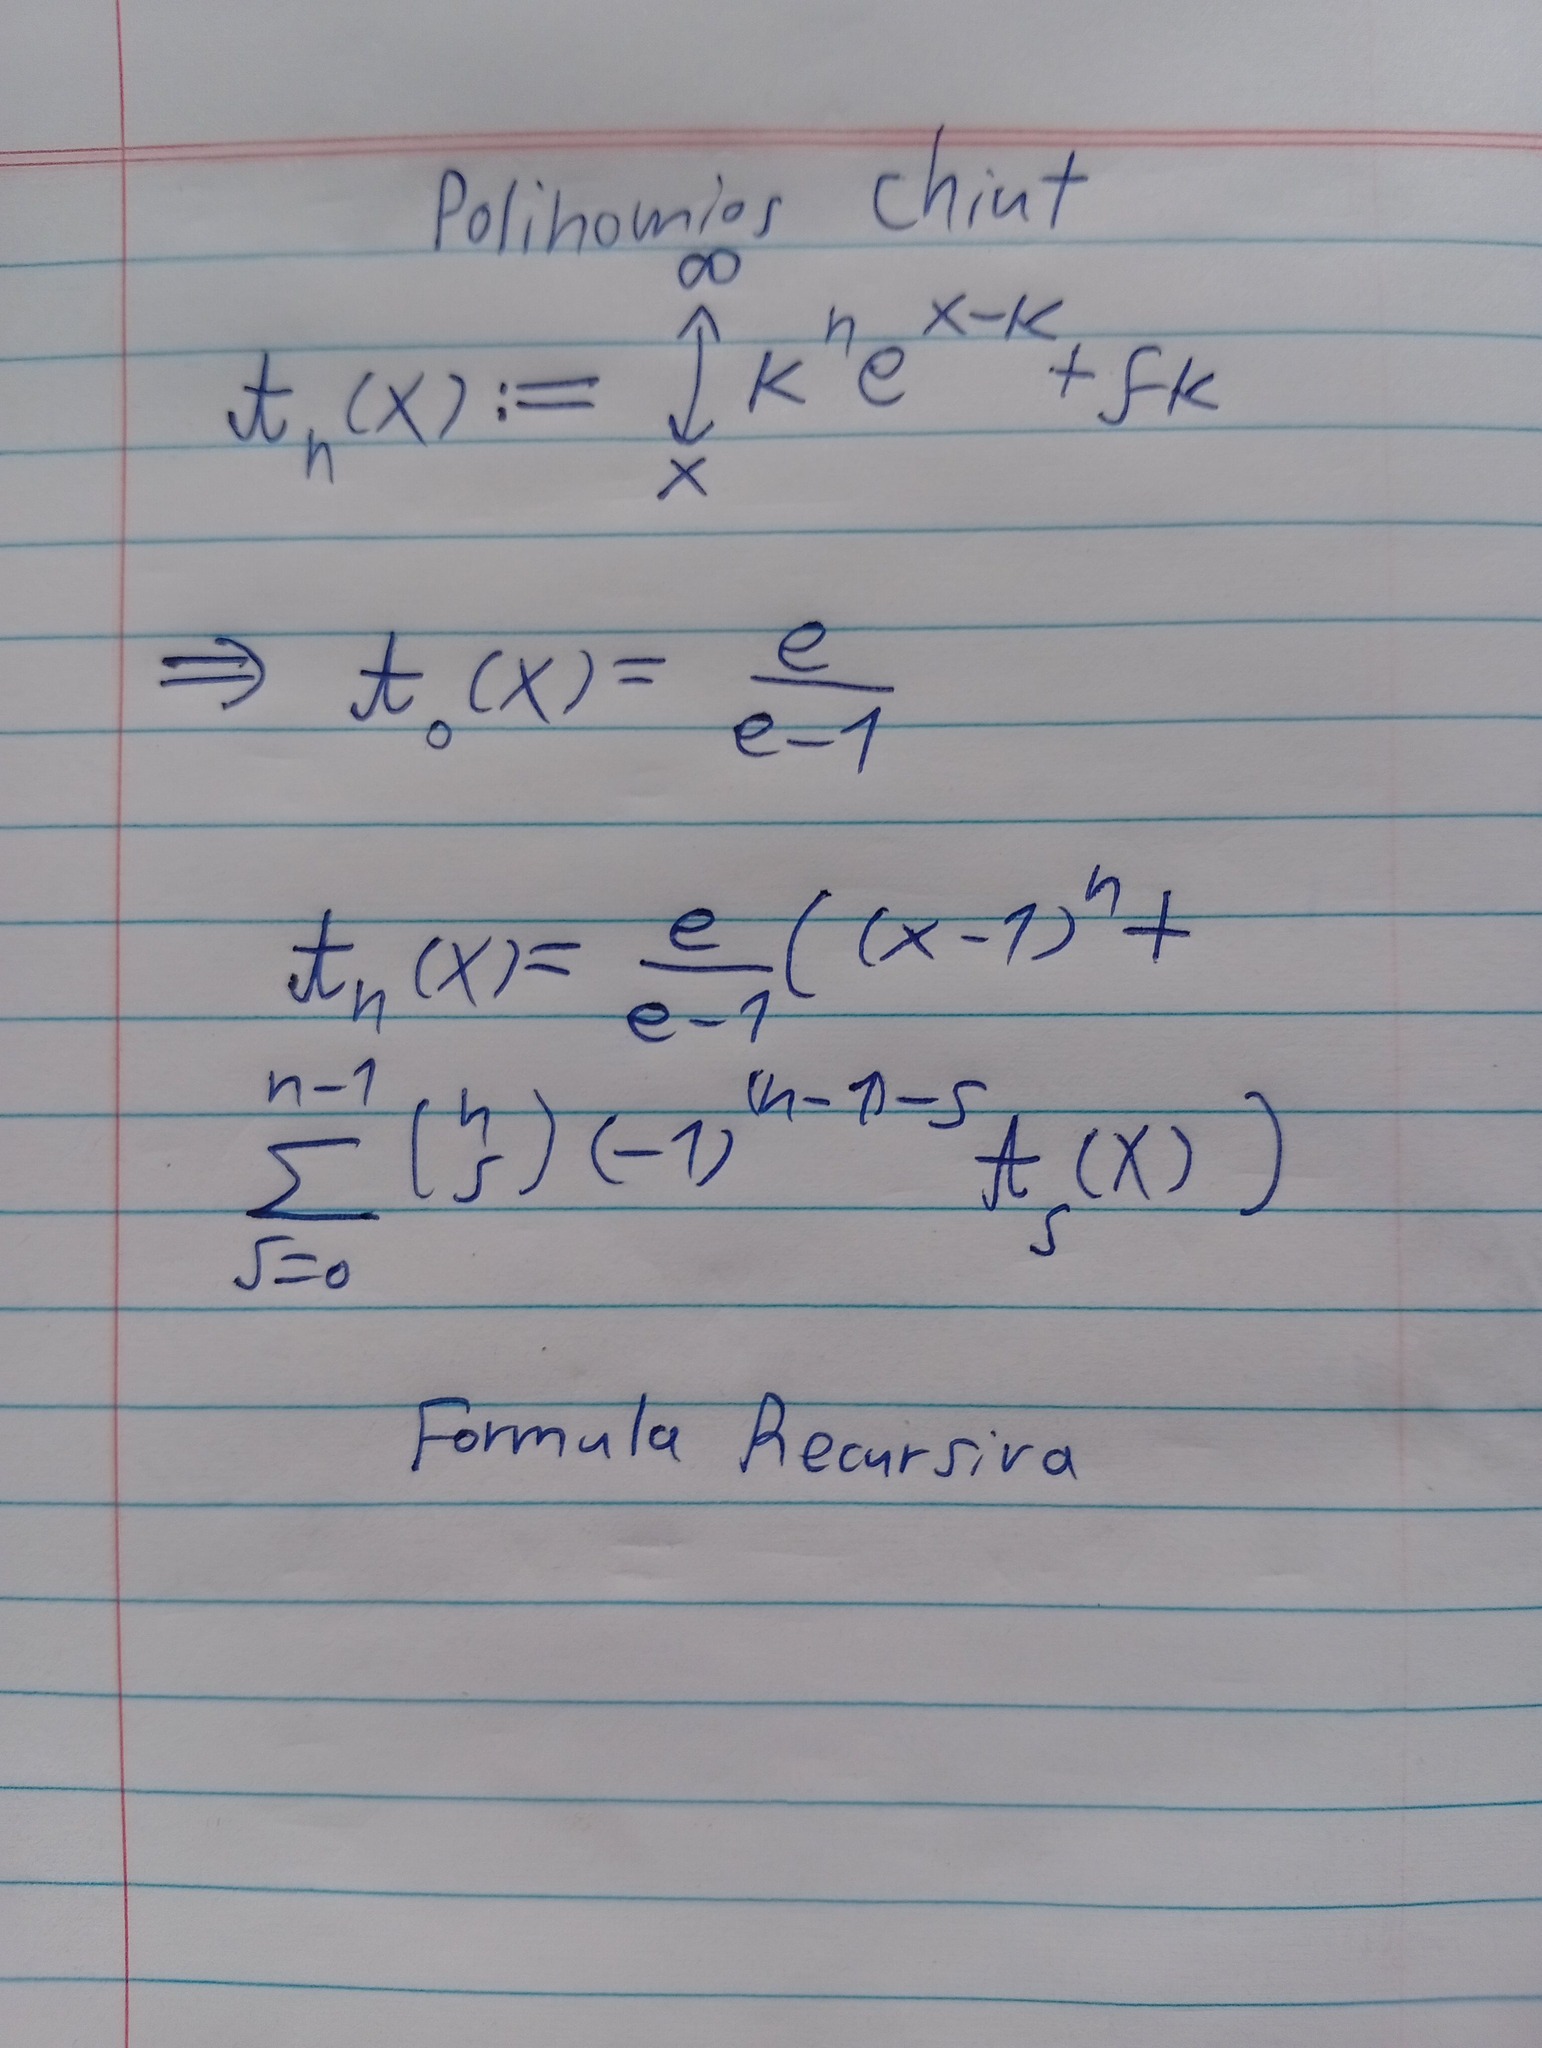 Polinomios Chiut
t_n(x) := ∞ ↕ x k^n e^{x-k} + ſk
⇒ t_0(x) = e/(e-1)
t_n(x) = e/(e-1) ( (x-1)^n +
∑_{s=0}^{n-1} (n s) (-1)^{(n-1)-s} t_s(x) )
Formula Recursiva